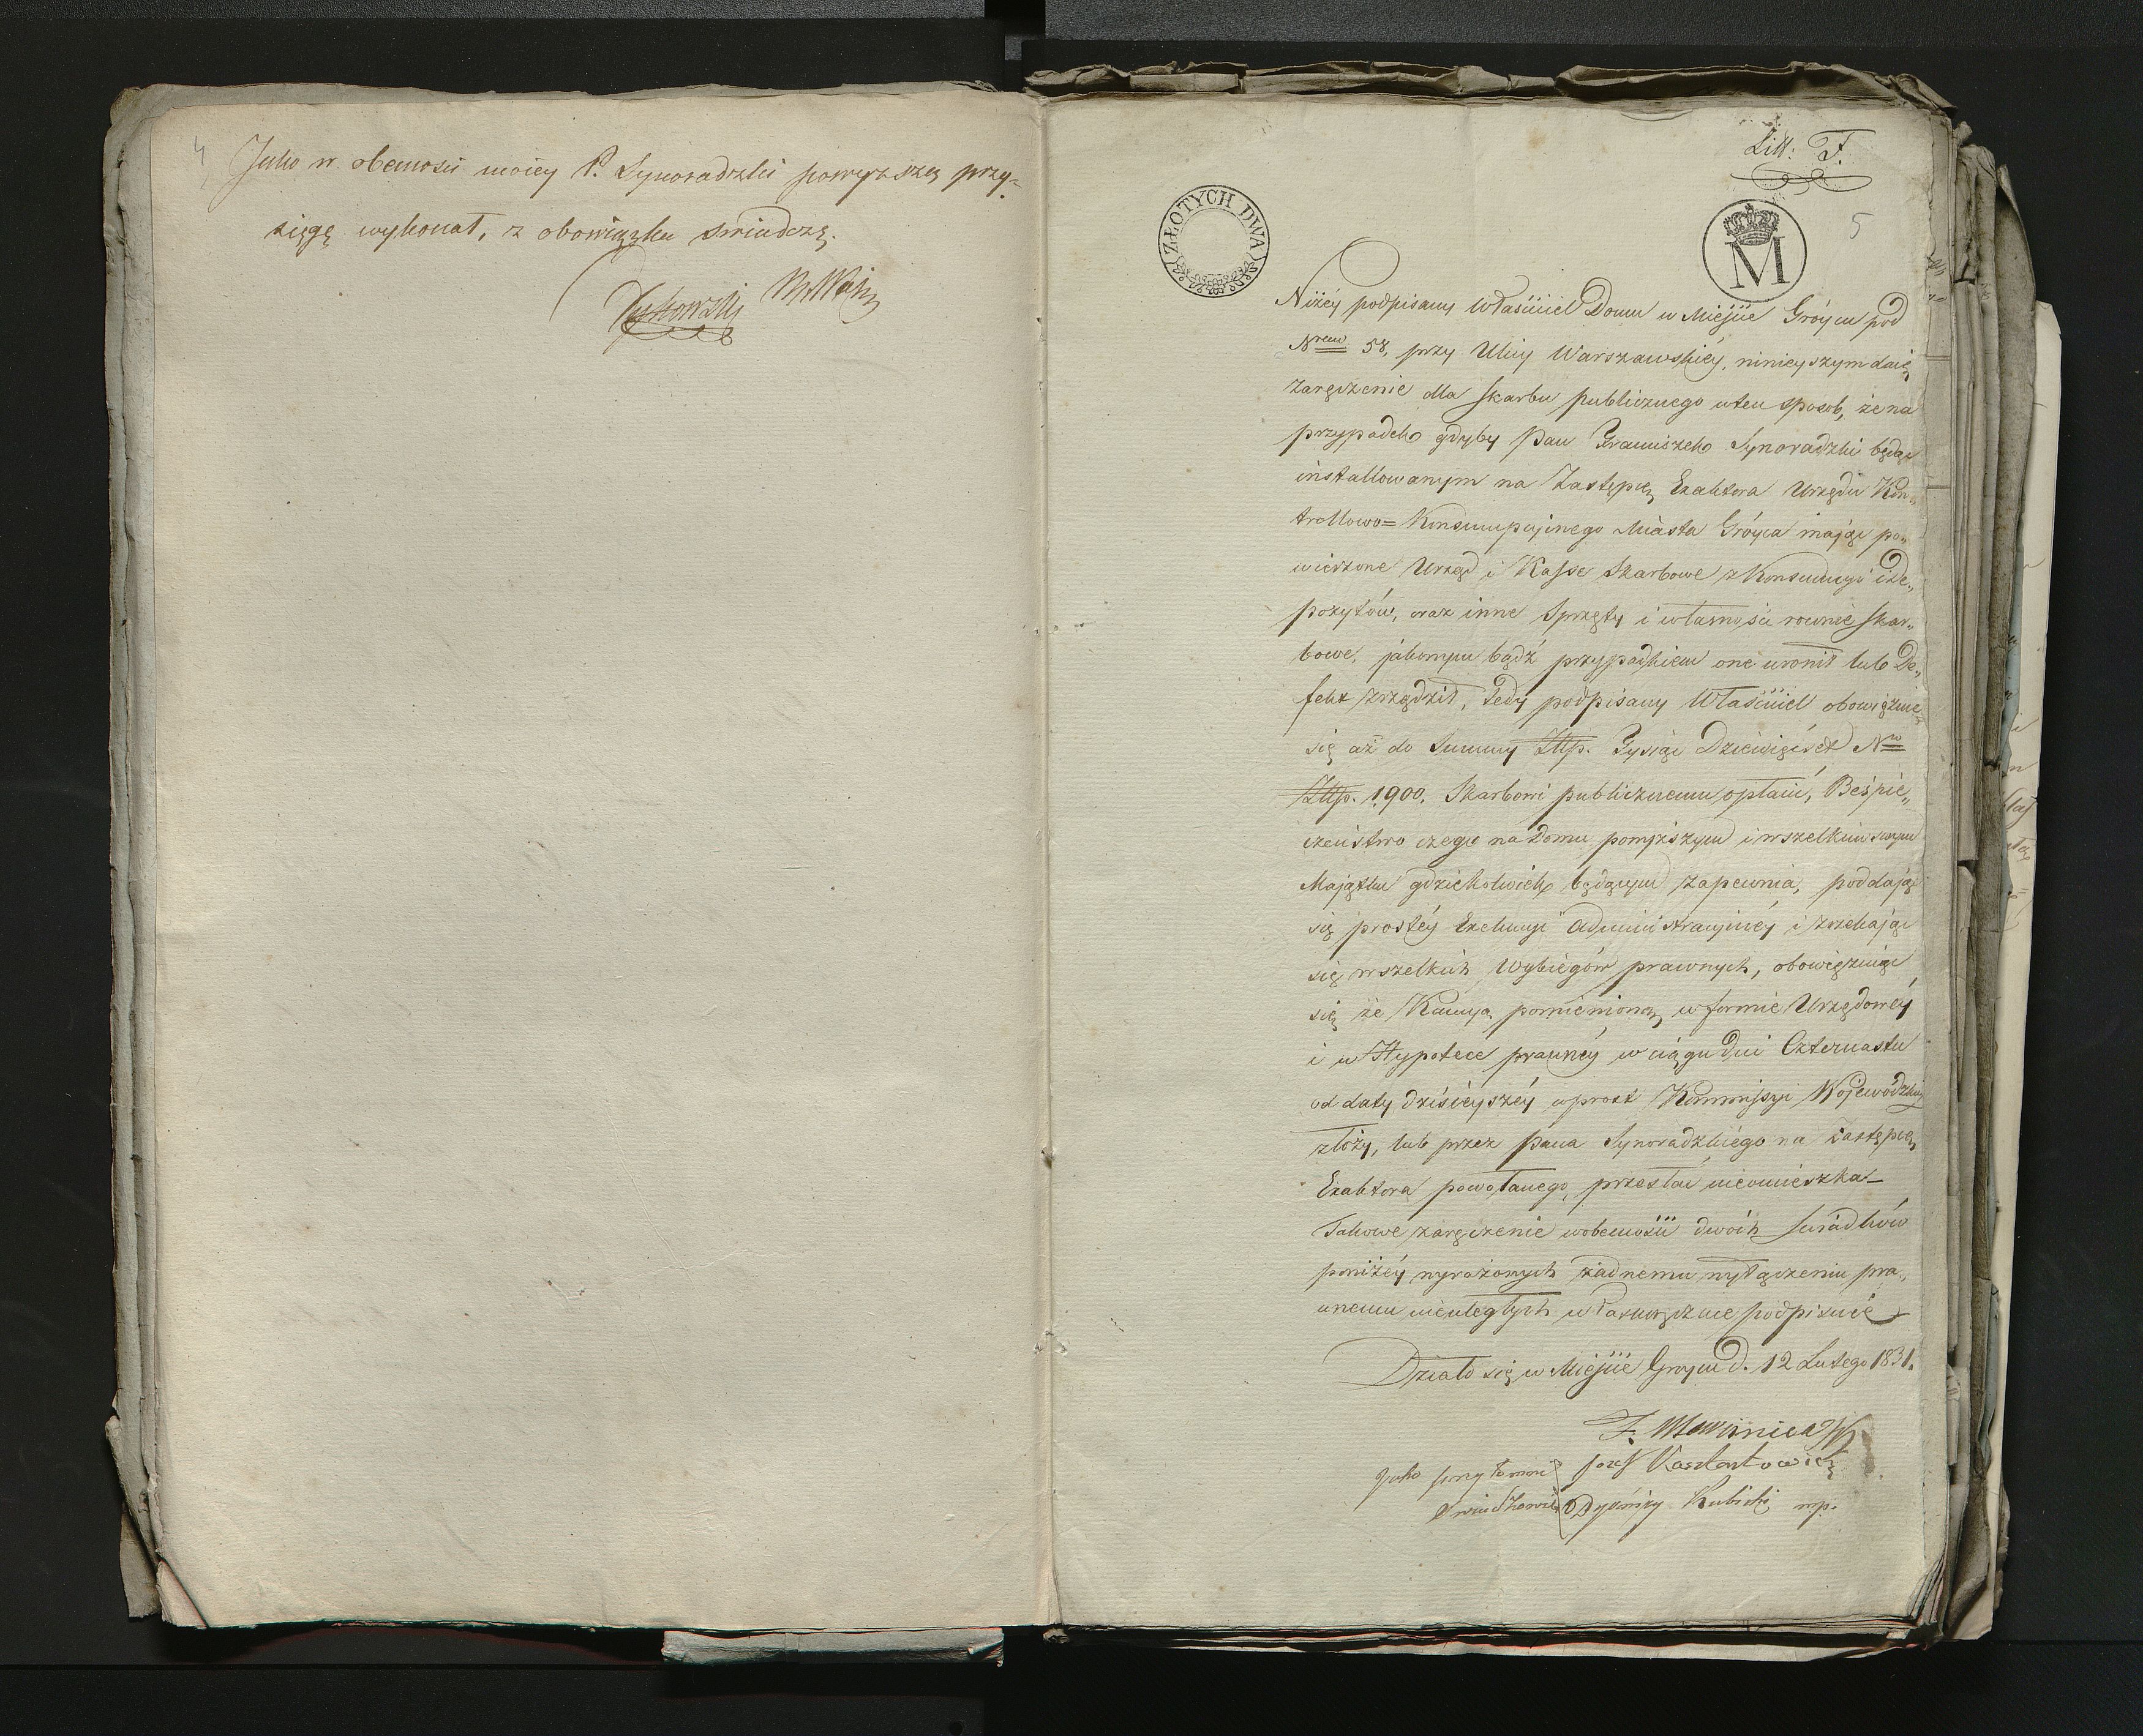 4
Jako w obecności moiey P. Synoradzki powyższą przy-
sięgę wykonał, z obowiązku świadczę.
Litt: F.
5
ZŁOTYCH DWA
M
Niżéy podpisany Właściciel Domu w Mieście Gróycu pod
Nrem 58, przy Ulicy Warszawskiéy, ninieyszym daię
zaręczenie dla skarbu publicznego w ten sposob, że na
przypadek gdyby Pan Franciszek Synoradzki będąc
installowanym na Zastępcę Exaktora Urzędu Kon„
trollowo=Konsumpcyjnego Miasta Gróyca mając po„
wierzone Urząd i Kasse Skarbowe z Konsumcyi i De„
pozytów, oraz inne Sprzęty i własności rownie skar„
bowe, jakowym bądź przypadkiem one uronił lub De„
fekt zrządził, tedy podpisany Właściciel obowiązuie
się aż do Summy Złłp. Tysiąc Dziewięćset Nro
Złłp. 1900. Skarbowi publicznemu opłacić, Beśpie„
czeństwo czego na Domu powyższym i wszelkim swym
Majątku gdziekolwiek będącym zapewnia, poddając
się prostéy Exekucyi Administracyinéy i zrzekając
się wszelkich Wybiegów prawnych, obowięzuiąc
się że Kaucyą pomienioną w formie Urzędowéy
i w Hypotece prawnéy w ciągu dni Czternastu
od daty dzisieyszéy wprost Kommissyi Wojewódzkiéy
złoży, lub przez Pana Synoradzkiego na zastępcę
Exaktora powołanego, przesłać nieomieszka_
Takowe zaręczenie w obecności dwóch świadków
poniżéy wyrażonych żadnemu wyłączeniu pra„
wnemu nieuległych własnoręcznie podpisuie
Działo się w Mieście Groycu d. 12 Lutego 1831.
Jozef
Jako przytomni
Świadkowie Kubicki mp.